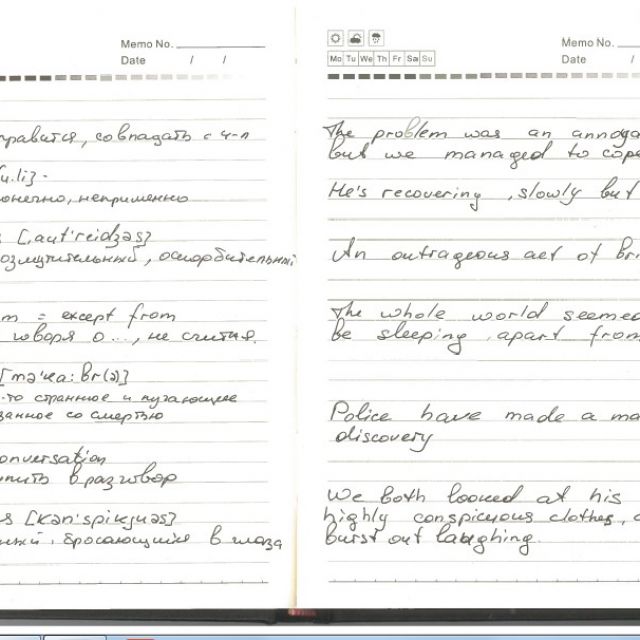 Memo No.
Date / /
правится, совпадать с ч-л
онечно, непременно
[,aut'reidʒəs]
озмутительный, оскорбительный
m = except from
говоря о..., не считая.
[mə'ka:br(ə)]
-то странное и пугающее
занное со смертью
onversation
упить в разговор
s [kən'spikjuəs]
бросающийся в глаза
Memo No.
Date / /
Mo Tu We Th Fr Sa Su
The problem was an annoya
but we managed to cope
He's recovering, slowly but
An outrageous act of Bri
The whole world seemed
be sleeping apart from
Police have made a ma
discovery
We both looked at his
highly conspicuous clothes,
burst out laughing.